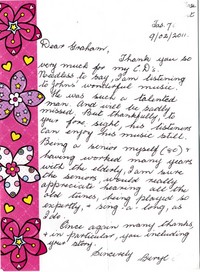 Tas. 7.
9/02/2011.
Dear Graham,
Thank you so
very much for my C.D.s
Needless to say, I am listening
to Johns' wonderful music.
He was such a talented
man. And will be sadly
missed. But thankfully, to
your fore sight, his listeners
can enjoy his music still.
Being a senior myself (80) &
having worked many years
with the elderly, I am sure
the seniors, would really
appreciate hearing all the
old tunes, being played so
expertly, & sing. a. long, as
I do.
Once again many thanks,
& in particular, you including
your story.
Sincerely Beryl.